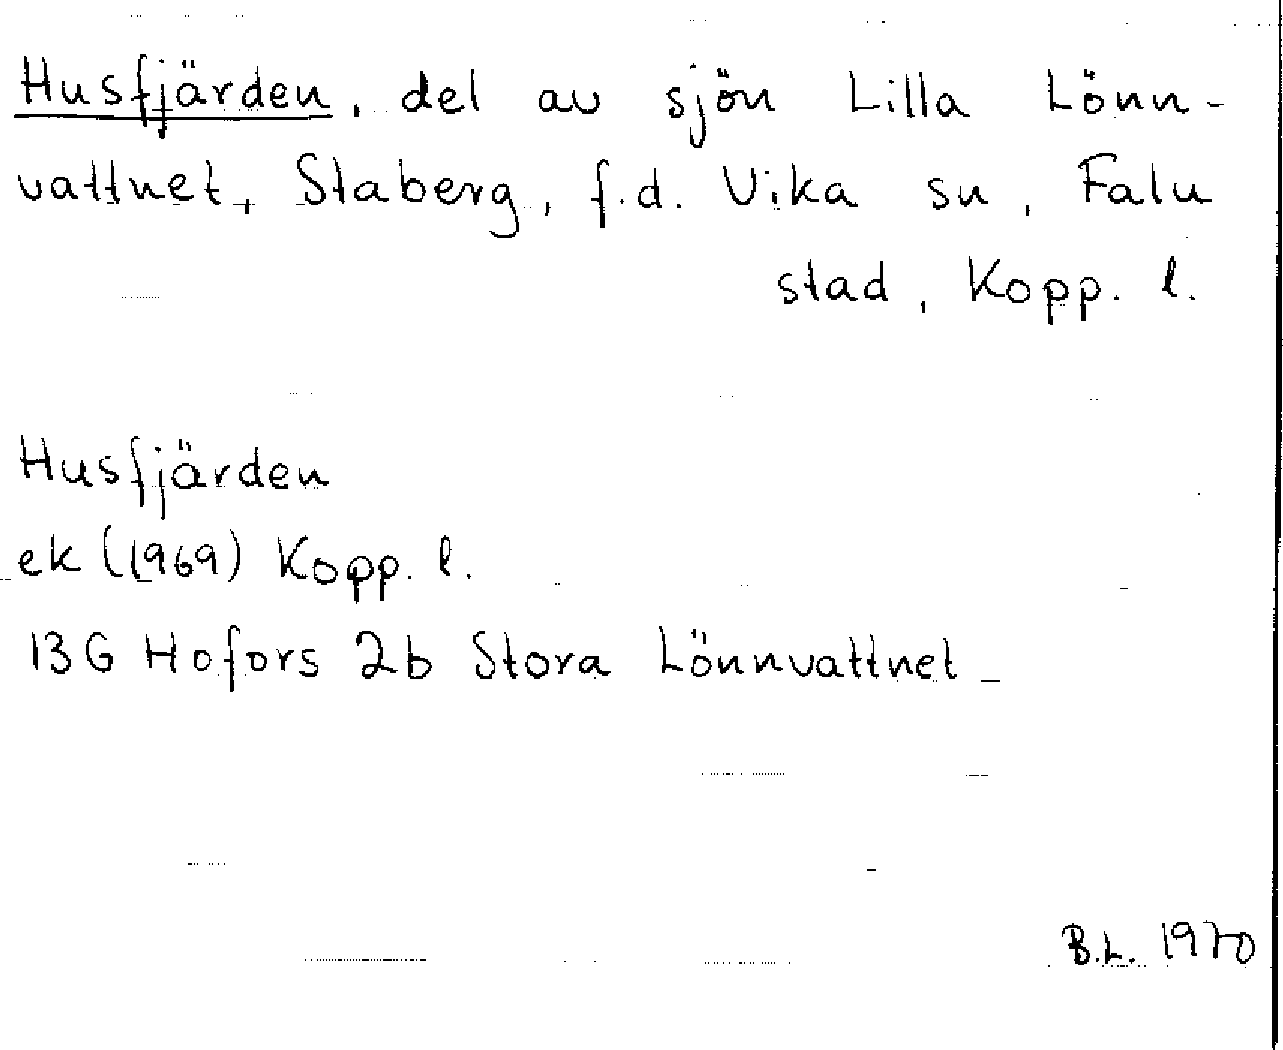 Husfjärden, del av sjön Lilla Lönn-
vattnet, Staberg, f.d. Vika sn, Falu
stad, Kopp. l.
Husfjärden
ek (1969) Kopp. l.
13G Hofors 2b Stora Lönnvattnet
B.L. 1970